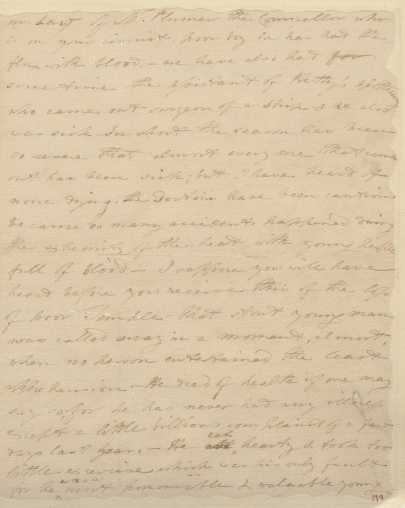 on board of Mr. Plumer the Councellor who
is on your circuit. poor boy he has had the
flux with blood, - we have also had for
some time the assistant of
who came out surgeon of a ship & he also
was sick. In short the season has been
so severe that almost every one that came
out has been sick; but I have heard of
none dying. the Doctors have been cautious
because so many accidents happened during
the extremity of the heat with young people
full of blood - I suppose you will have
heard before you receive this of the loss
of poor - that stout young man
was called away in a moment, almost,
when no person entertained the least
apprehension - He died of health if one may
say so, for he has never had any illness
except a little billious complaint of a few
days last year. - He eat hearty & took too
little exercise which was his only fault
for he was a most honourable & valuable young
199